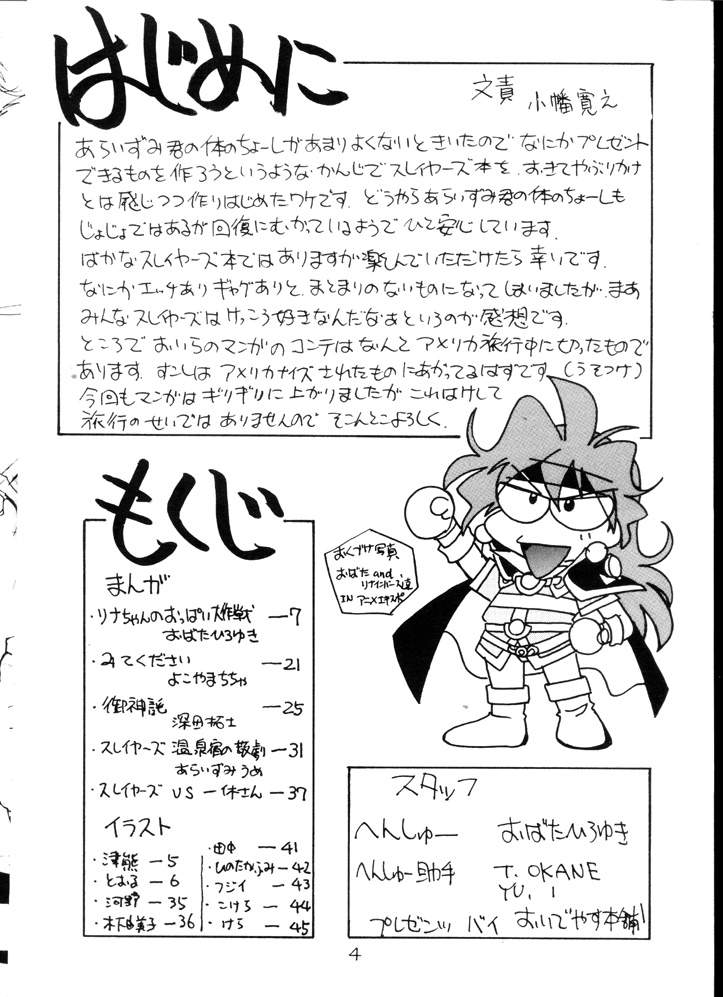 はじめに
文責 小幡寛え
あらいずみ君の体のちょーしがあまりよくないときいたので なにかプレゼント
できるものを作ろうというような かんじでスレイヤーズ本を おきてやぶりかけ
とは感じつつ作りはじめたワケです. どうやらあらいずみ君の体のちょーしも
じょじょではあるが回復にむかっているようで ひと安心しています.
ばかなスレイヤーズ本ではありますが楽しんでいただけたら幸いです.
なにかエッチありギャグありと、まとまりのないものになってしまいましたが、まあ
みんなスレイヤーズはけっこう好きなんだなあというのが感想です.
ところで おいらのマンガのコンテはなんと アメリカ旅行中に切ったもので
あります. すこしは アメリカナイズされたものにあがってるはずです (うそつけ)
今回もマンガはギリギリに上がりましたが これはけして
旅行のせいでは ありませんので そこんとこよろしく.
もくじ
まんが
・リナちゃんのおっぱい大作戦 —7
おばたひろゆき
・みてください —21
よこやまちちゃ
・御神託 —25
深田拓士
・スレイヤーズ 温泉宿の惨劇 —31
あらいずみうめ
・スレイヤーズ VS 一休さん —37
イラスト
・津熊 —5
・とおる —6
・河野 —35
・木下英子 —36
・田中 —41
・ひのたかふみ —42
・フジイ —43
・こけら —44
・けら —45
おくづけ写真
おばた and
リナインバース達
IN アニメエキスポ
スタッフ
へんしゅー おばたひろゆき
へんしゅー助手 T. OKANE
YU, I
プレゼンツ バイ おいでやす本舗
4